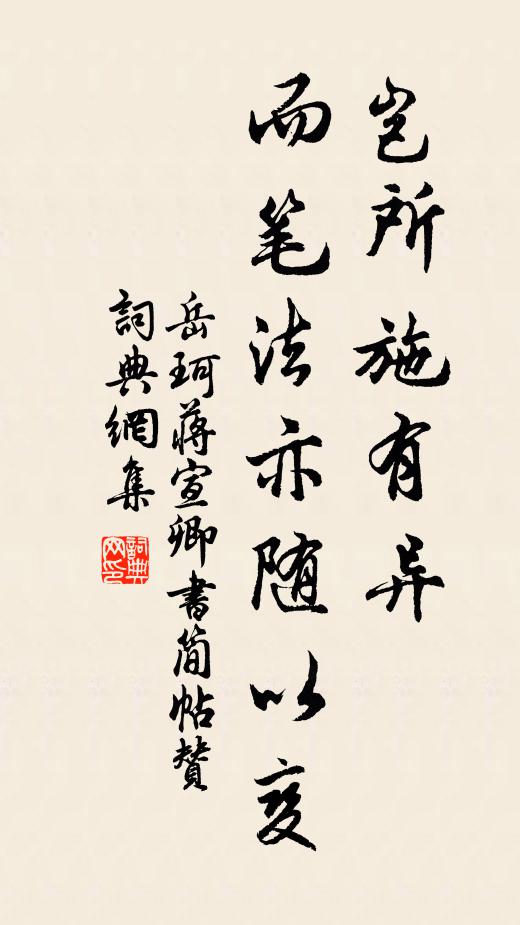 岂所施有异
而笔法亦随以变
岳珂蒋宣卿書简帖赞
詞典網集
詞典网印